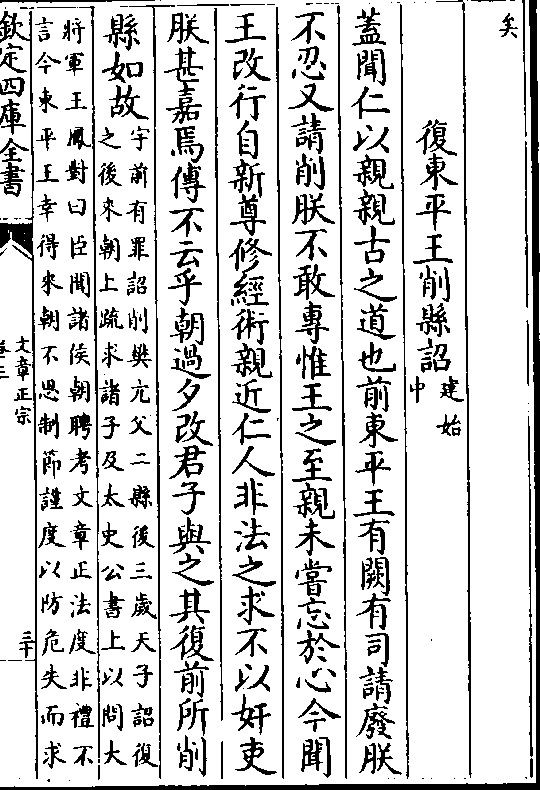 矣
復東平王削縣詔建始中
蓋聞仁以親親古之道也前東平王有闕有司請廢朕
不忍又請削朕不敢專惟王之至親未嘗忘於心今聞
王改行自新尊修經術親近仁人非法之求不以奸吏
朕甚嘉焉傳不云乎朝過夕改君子與之其復前所削
縣如故
宇前有罪詔削樊亢父二縣後三歲天子詔復
之後來朝上疏求諸子及太史公書上以問大
將軍王鳳對曰臣聞諸侯朝聘考文章正法度非禮不
言今東平王幸得來朝不思制節謹度以防危失而求
欽定四庫全書
文章正宗
卷三
三十